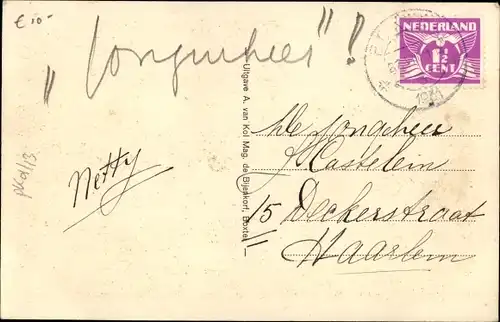 € 10-
"Jongeheer"!
NEDERLAND
1½
CENT
Uitgave A. van Kol Mag. de Bijenkorf, Boxtel
Netty
De Jongeheer
H Kastelem
15 Deckerstraat
Haarlem